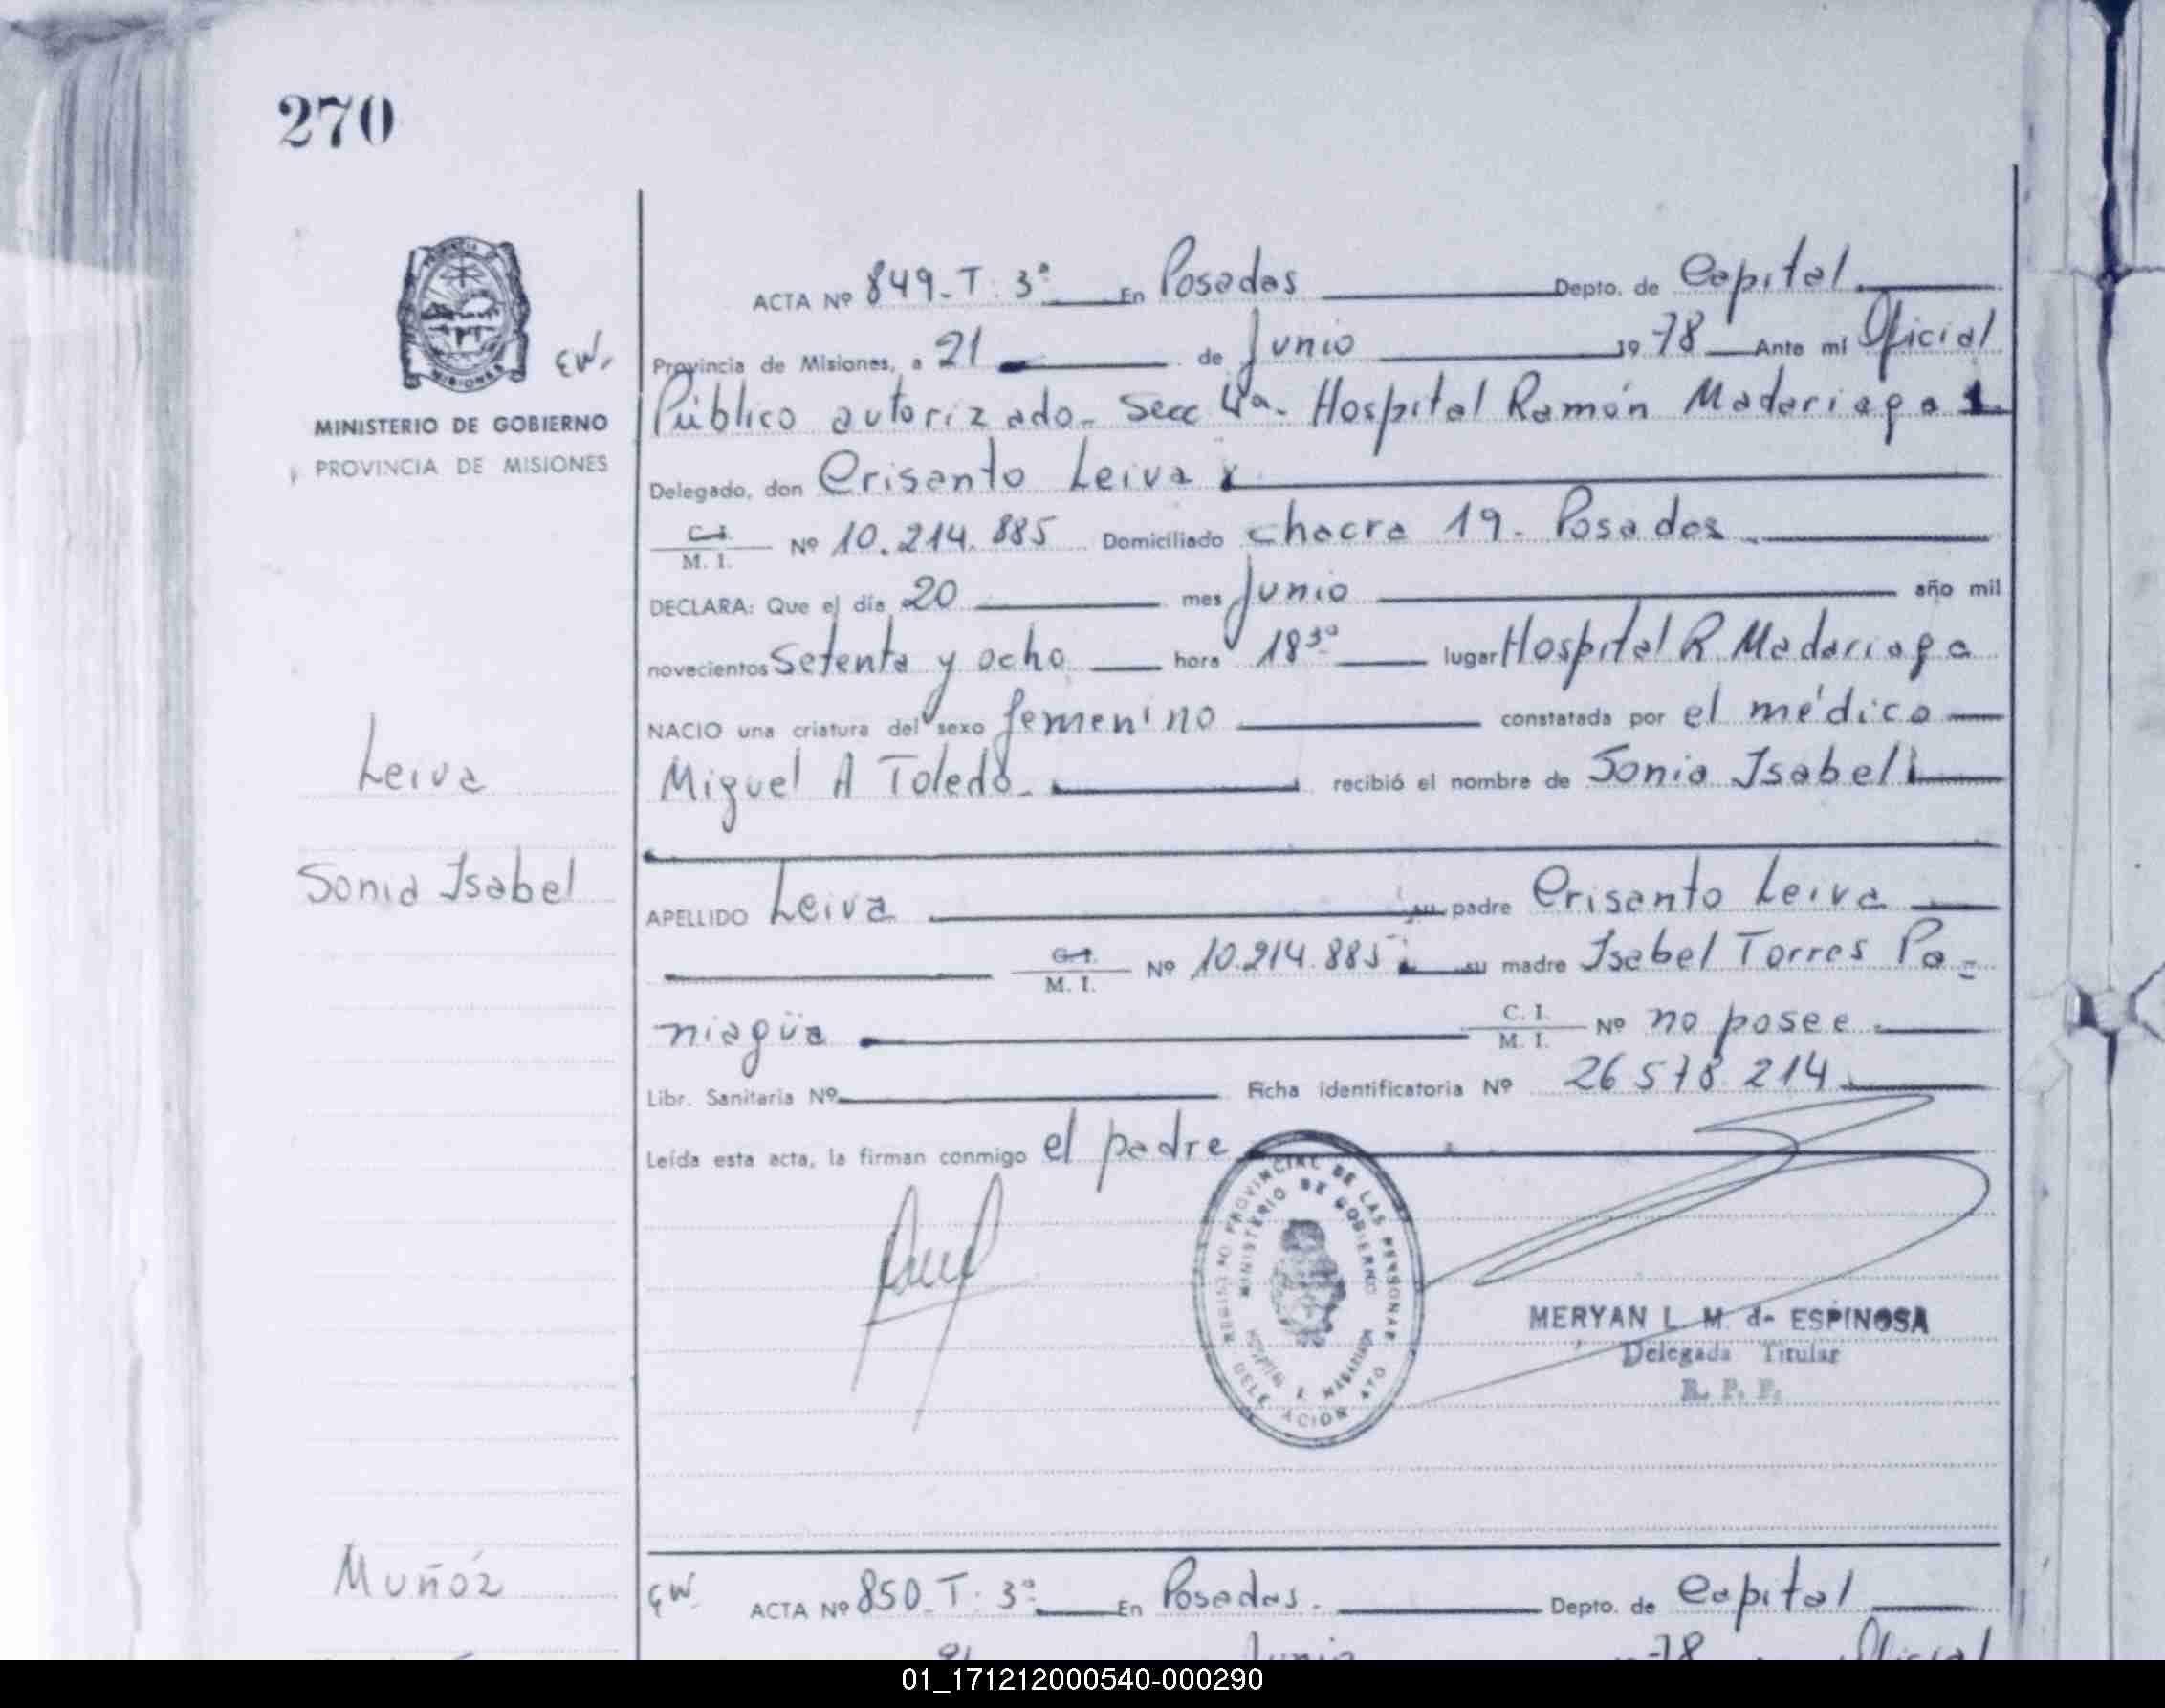 270
EW.
MINISTERIO DE GOBIERNO
PROVINCIA DE MISIONES
ACTA Nº 849-T. 3º En Posadas Depto. de Capital
Provincia de Misiones, a 21 de Junio 1978 Ante mi Oficial
Público autorizado- Secc 4ª- Hospital Ramón Madariaga
Delegado, don Crisanto Leiva
C.I. M. I. Nº 10.214.885 Domiciliado chacra 19- Posadas
DECLARA: Que el día 20 mes Junio año mil
novecientos Setenta y ocho hora 18³⁰ lugar Hospital R. Madariaga
NACIO una criatura del sexo femenino constatada por el médico
Miguel A Toledo- recibió el nombre de Sonia Isabel
Leiva
Sonia Isabel
APELLIDO Leiva su padre Crisanto Leiva
C.I. M. I. Nº 10.214.885 su madre Isabel Torres Pa=
niagüa C. I. M. I. Nº no posee
Libr. Sanitaria Nº Ficha identificatoria Nº 26 578 214
Leída esta acta, la firman conmigo el padre
PROVINCIAL DE LAS PERSONAS
MINISTERIO DE GOBIERNO
MERYAN L. M. de ESPINOSA
Delegada Titular
R. P. P.
Muñóz
EW. ACTA Nº 850-T. 3º En Posadas. Depto. de Capital
21 Junio 78 Oficial
01_171212000540-000290